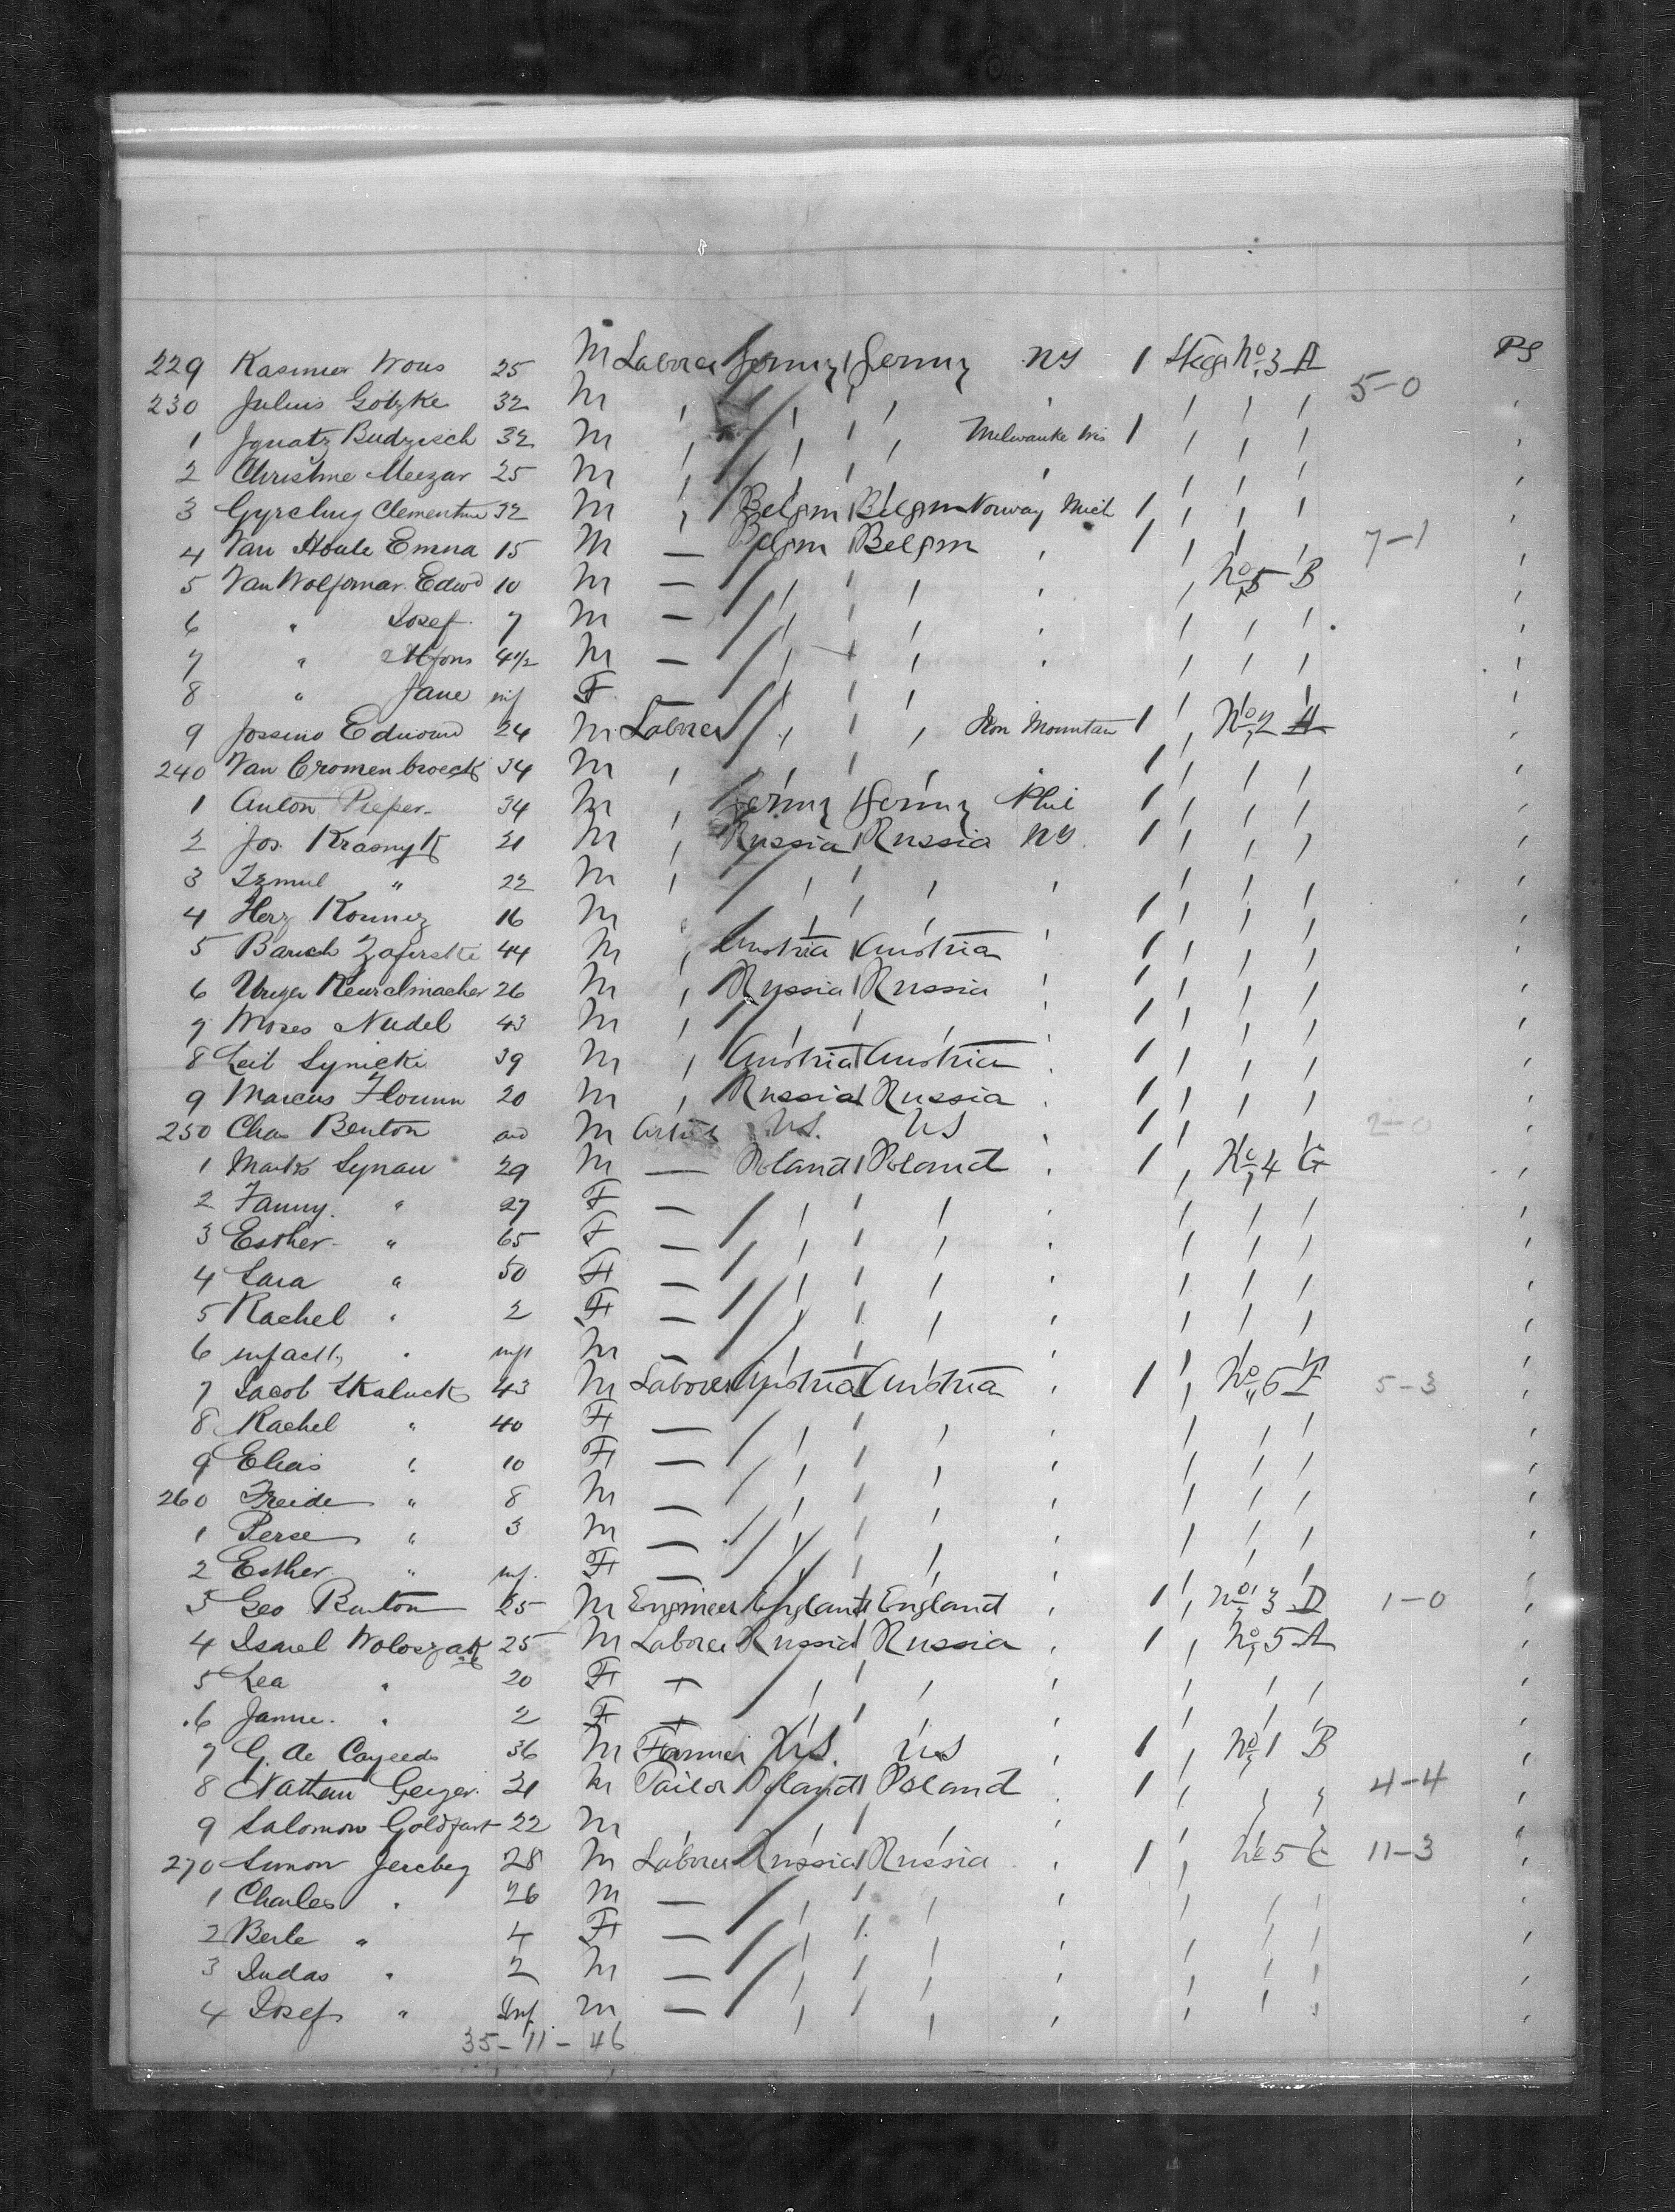 229 Kasimer Wous 25 M Laborer Germy Germy NY 1 Stegs No 3 A PS
230 Julius Gotzke 32 M ' ' ' ' ' ' ' 5-0
1 Ignatz Budzisch 32 M ' ' ' Milwauke Wis 1 ' ' '
2 Christine Meezar 25 M ' ' ' ' ' ' '
3 Clementine 32 M ' Belgm Belgm Norway Mich 1 ' ' '
4 Van Houte Emma 15 M — Belgm Belgm ' 1 ' ' ' 7-1
5 Van Wolfomar Edwd 10 M — ' ' ' ' No 5 B
6 " Josef 7 M — ' ' ' ' ' '
7 " Alfons 4 1/2 M — ' ' ' ' ' '
8 " Jane inf F — ' ' ' ' '
9 Jossino Edward 24 M Laborer ' ' Iron Mountan 1 ' No 2 A
240 Van Cromenbroeck 34 M ' ' ' ' 1 ' ' '
1 Anton Pieper 34 M ' Germy Germy Phil 1 ' ' '
2 Jos. Krasnyk 21 M ' Russia Russia NY 1 ' ' '
3 Izmul " 22 M ' ' ' ' ' ' '
4 Herz 16 M ' ' ' 1 ' ' '
5 Baruch Zafirski 44 M ' Austria Austria ' 1 ' ' '
6 26 M ' Russia Russia ' 1 ' ' '
7 Moses Nudel 43 M ' ' ' ' 1 ' ' '
8 Leit Synicki 39 M ' Austria Austria ' 1 ' ' '
9 Marcus 20 M ' Russia Russia ' 1 ' ' '
250 Chas Benton M Artist US. US ' 1 ' 2-0
1 Marks Synau 29 M — Poland Poland ' 1 ' No 4 G
2 Fanny " 27 F — ' ' ' ' ' '
3 Esther " 65 F — ' ' ' ' ' '
4 Sara " 50 F — ' ' ' ' ' '
5 Rachel " 2 F — ' ' ' ' ' '
6 " inft M — ' ' ' ' '
7 Jacob Skaluck 43 M Laborer Austria Austria ' 1 ' No 6 F 5-3
8 Rachel " 40 F — ' ' ' ' ' '
9 Elias " 10 F — ' ' ' ' ' '
260 Freide " 8 M — ' ' ' ' ' '
1 Perse " 3 M — ' ' ' ' ' '
2 Esther " inf. F — ' ' ' ' '
3 Geo Burton 25 M Engineer England England ' 1 ' No 3 D 1-0
4 Israel Woloszak 25 M Laborer Russia Russia ' 1 ' No 5 A
5 Lea " 20 F — ' ' ' ' ' '
6 Janne " 2 F — ' ' ' ' ' '
7 G. de Cayeedo 36 M Farmer US. US ' 1 ' No 1 B
8 Nathan Geyer 21 M Tailor Poland Poland ' 1 ' ' ' 4-4
9 Salomon Goldfart 22 M ' ' ' ' ' '
270 Simon Jercbeg 28 M Laborer Russia Russia ' 1 ' No 5 C 11-3
1 Charles " 26 M — ' ' ' ' ' '
2 Berle " 4 F — ' ' ' ' ' '
3 Judas " 2 M — ' ' ' ' ' '
4 Josef " Inf M — ' ' ' ' ' '
35-11-46